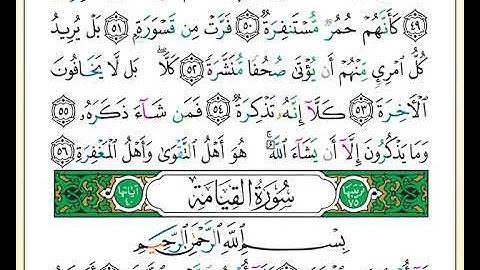 ٤٩ كَأَنَّهُمْ حُمُرٌ مُّسْتَنفِرَةٌ ٥٠ فَرَّتْ مِن قَسْوَرَةٍ ٥١ بَلْ يُرِيدُ
كُلُّ ٱمْرِئٍ مِّنْهُمْ أَن يُؤْتَىٰ صُحُفًا مُّنَشَّرَةً ٥٢ كَلَّا ۖ بَل لَّا يَخَافُونَ
ٱلْأَخِرَةَ ٥٣ كَلَّآ إِنَّهُۥ تَذْكِرَةٌ ٥٤ فَمَن شَآءَ ذَكَرَهُۥ ٥٥
وَمَا يَذْكُرُونَ إِلَّآ أَن يَشَآءَ ٱللَّهُ ۚ هُوَ أَهْلُ ٱلتَّقْوَىٰ وَأَهْلُ ٱلْمَغْفِرَةِ ٥٦
ترتيبها ٧٥ سُورَةُ القِيَامَةِ آياتها ٤٠
بِسْمِ ٱللَّهِ ٱلرَّحْمَٰنِ ٱلرَّحِيمِ